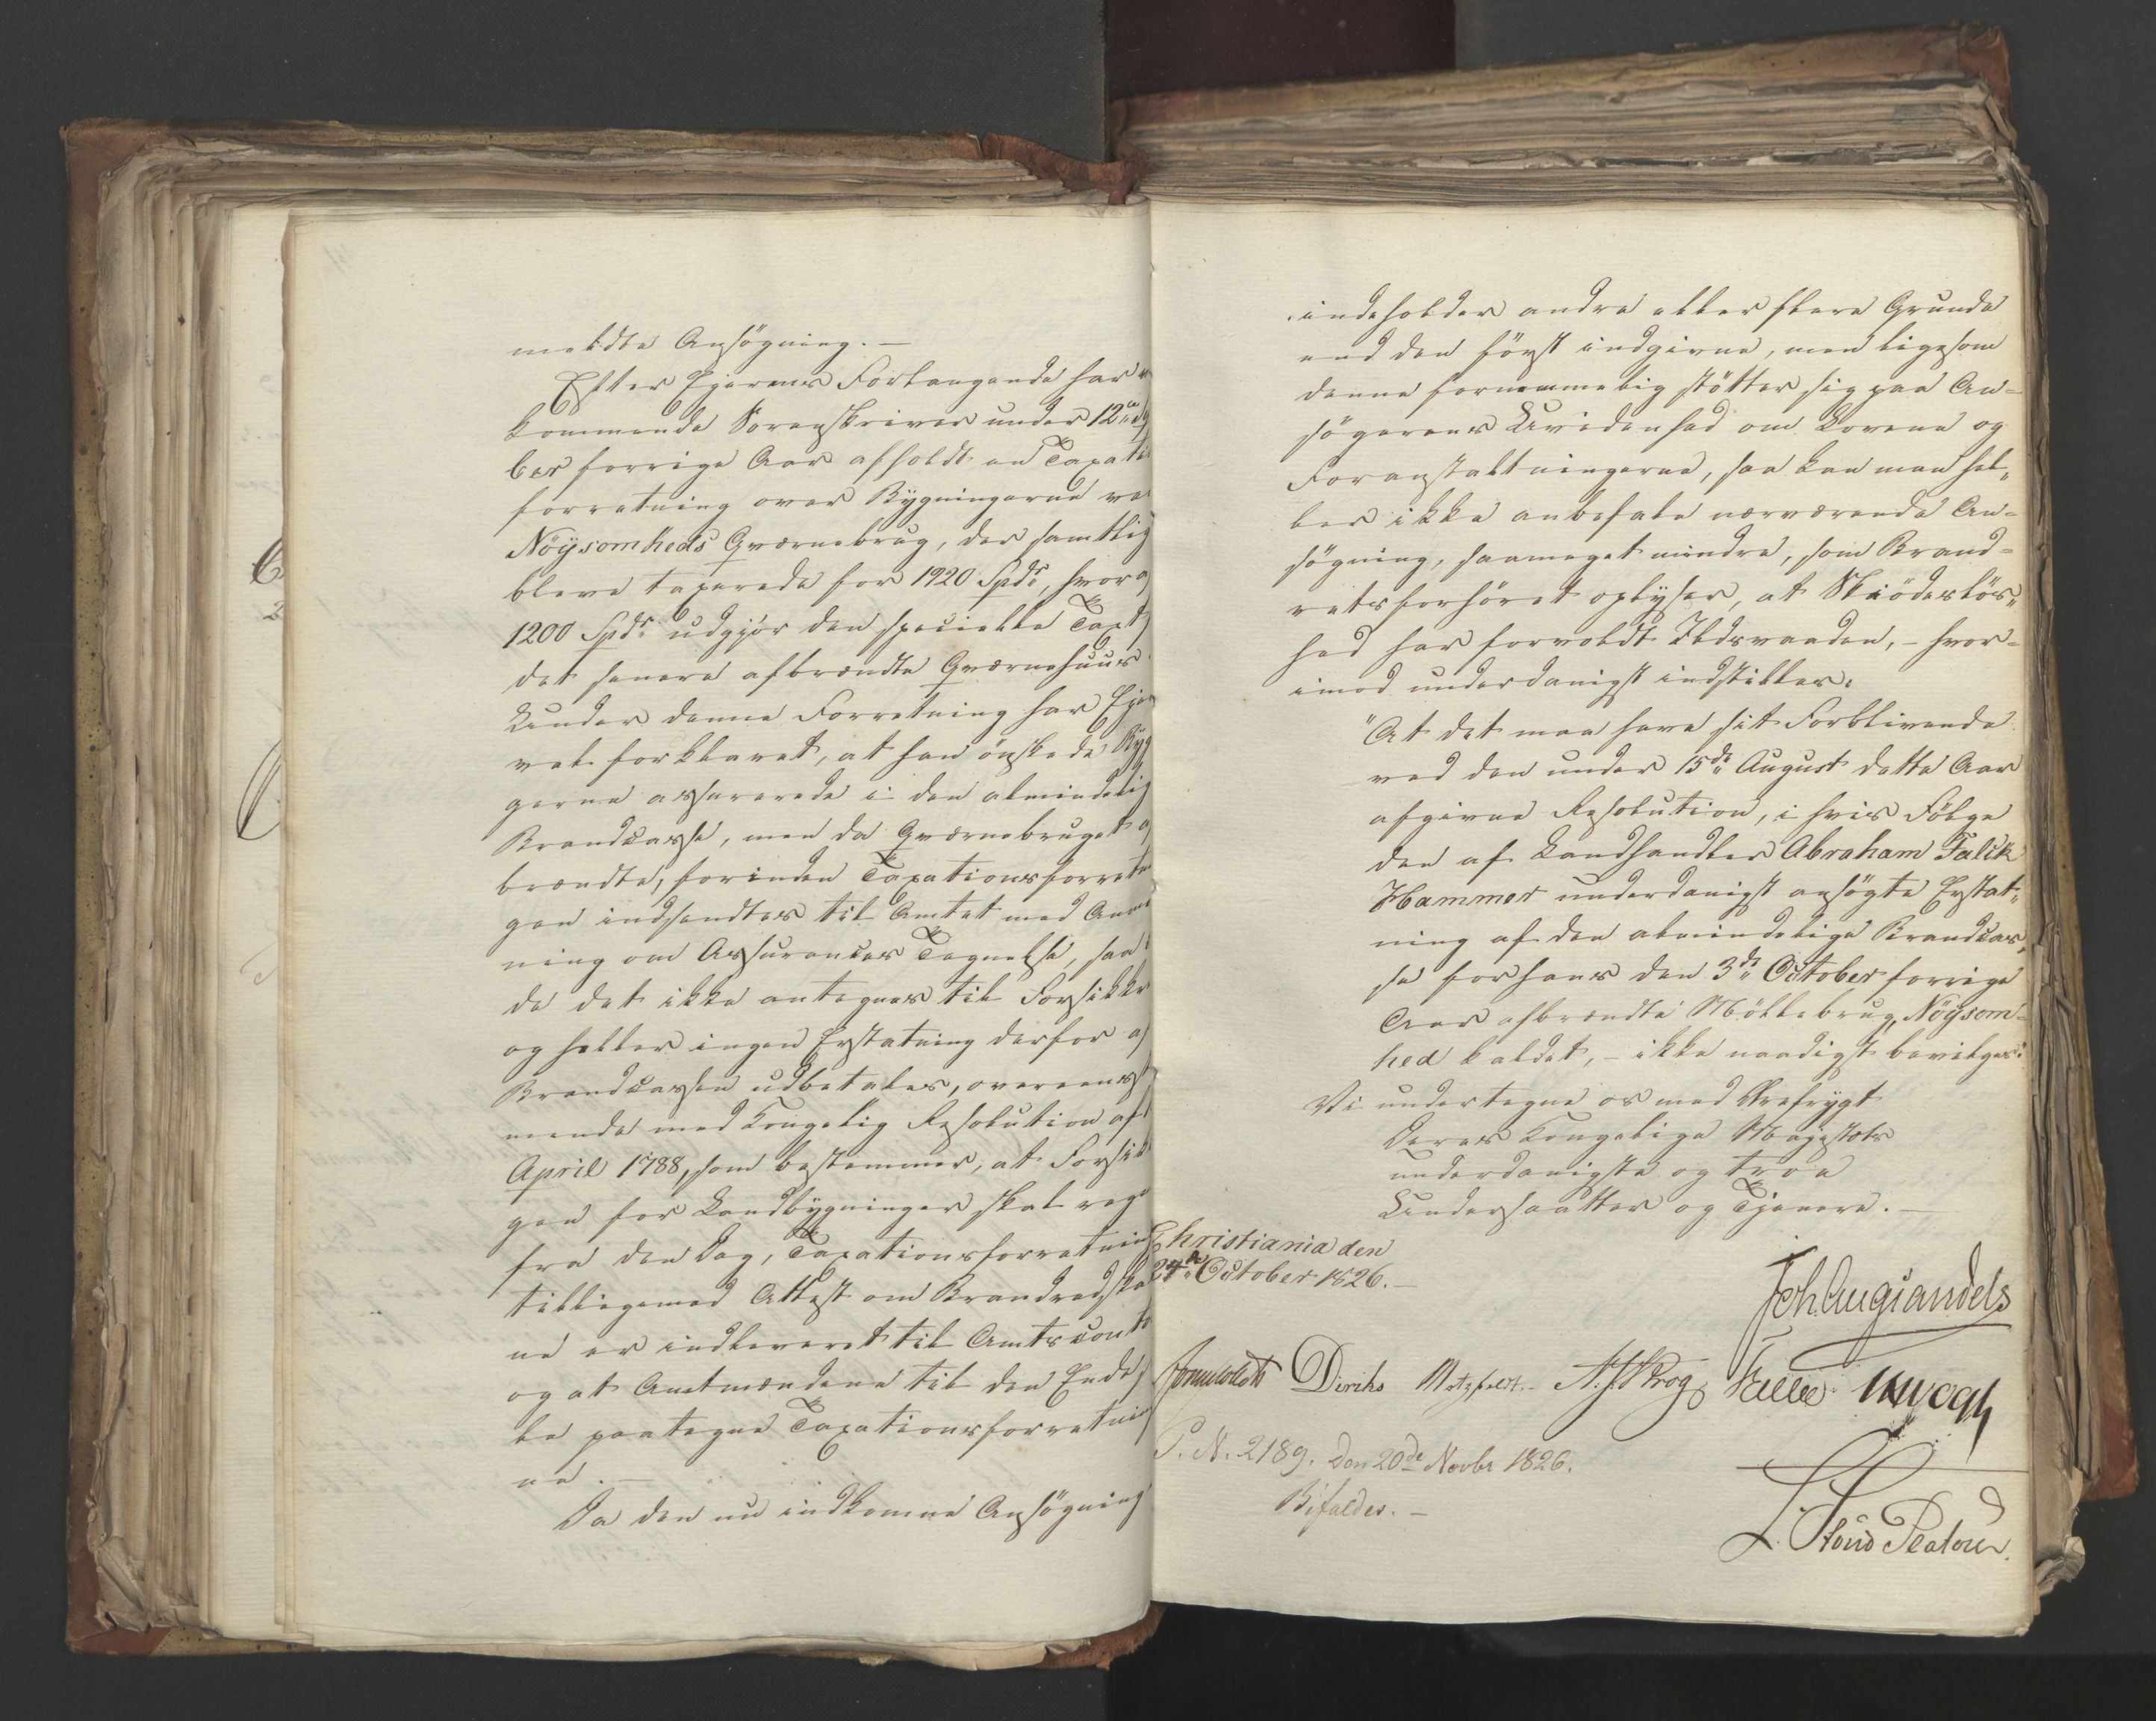 meldte Ansögning. —
Efter Ejerens Forlangende har
kommende Sorenskriver under 12te
ber forrige Aar afholdt en Taxati
forretning over Bygningerne ve
Nöÿsomheds Qværnebrug, der samtlig
bleve taxerede for 1920 Spdr, hvora
1200 Spdr udgjör den specielle Taxt
det senere afbrændte Qværnehuus.
Under denne Forretning har Eje
vel forklaret, at han önskede Byg
gerne assurerede i den almindelig
Brandcasse, men da Qværnebruget a
brændte, forinden Taxationsforretn
gen indsendtes til Amtet med Anm
ning om Assurances Tegnelse, saa
de det ikke antegnes til Forsikkr
og heller ingen Erstatning derfor af
Brandcassen udbetales, overeenst
mende med Kongelig Resolution af
April 1788, som bestemmer, at Forsik
gen for Landbygninger skal regn
fra den Dag, Taxationsforretnin
tilligemed Attest om Brandredska
ne er indleveret til Amtscont
og at Amtmændene til den Ende
le paategne Taxationsforretnin
ne. —
Da den nu indkomne Ansögning
indeholder andre eller flere Grunde
end den först indgivne, men ligesom
denne fornemmelig stötter sig paa An=
sögerens Uvidenhed om Lovene og
Foranstaltningerne, saa kan man hel„
ler ikke anbefale nærværende An=
sögning, saameget mindre, som Brand=
retsforhöret oplyser, at Skiödeslös„
hed har forvoldt Ildsvaaden, – hvor=
imod underdanigst indstilles:
"At det maa have sit Forblivende
ved den under 15de August dette Aar
afgivne Resolution, i hvis Fölge
den af Landhandler Abraham Falck
Hammer underdanigst ansögte Erstat„
ning af den almindelige Brandcas„
se for hans den 3de October forrige
Aar afbrændte Möllebrug, Nöÿsom=
hed kaldet, – ikke naadigst bevilges."
Vi undertegne os med Ærefrygt
Deres Kongelige Majestæts
underdanigste og troe
Undersaatter og Tjenere. —
Christiania den
24de October 1826. —
Joh. Aug Sandels
Sommerfeldt Diriks Motzfeldt. A. J. Krog, Falbe. JHVogt
P. N. 2189. Den 20de Novbr 1826.
Bifaldes. —
L. Stoud Platou.